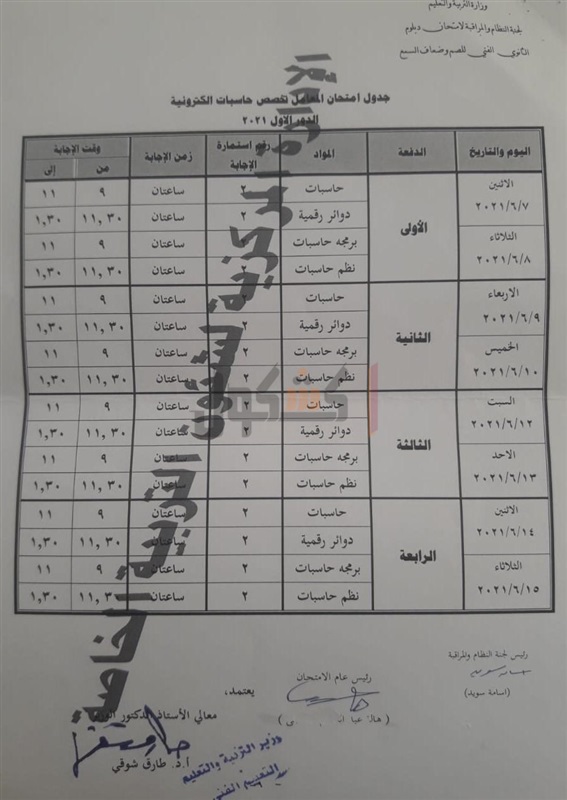 وزارة التربية والتعليم
لجنة النظام والمراقبة لامتحان دبلوم
الثانوي الفني للصم وضعاف السمع
جدول امتحان المعامل تخصص حاسبات الكترونية
الدور الأول ٢٠٢١
اليوم والتاريخ الدفعة المواد رقم استمارة الإجابة زمن الإجابة وقت الإجابة من إلى
الاثنين ٢٠٢١/٦/٧ الأولى حاسبات ٢ ساعتان ٩ ١١
دوائر رقمية ٢ ساعتان ١١,٣٠ ١,٣٠
الثلاثاء ٢٠٢١/٦/٨ برمجه حاسبات ٢ ساعتان ٩ ١١
نظم حاسبات ٢ ساعتان ١١,٣٠ ١,٣٠
الاربعاء ٢٠٢١/٦/٩ الثانية حاسبات ٢ ساعتان ٩ ١١
دوائر رقمية ٢ ساعتان ١١,٣٠ ١,٣٠
الخميس ٢٠٢١/٦/١٠ برمجه حاسبات ٢ ساعتان ٩ ١١
نظم حاسبات ٢ ساعتان ١١,٣٠ ١,٣٠
السبت ٢٠٢١/٦/١٢ الثالثة حاسبات ٢ ساعتان ٩ ١١
دوائر رقمية ٢ ساعتان ١١,٣٠ ١,٣٠
الاحد ٢٠٢١/٦/١٣ برمجه حاسبات ٢ ساعتان ٩ ١١
نظم حاسبات ٢ ساعتان ١١,٣٠ ١,٣٠
الاثنين ٢٠٢١/٦/١٤ الرابعة حاسبات ٢ ساعتان ٩ ١١
دوائر رقمية ٢ ساعتان ١١,٣٠ ١,٣٠
الثلاثاء ٢٠٢١/٦/١٥ برمجه حاسبات ٢ ساعتان ٩ ١١
نظم حاسبات ٢ ساعتان ١١,٣٠ ١,٣٠
الإدارة المركزية لشئون التربية الخاصة
كشكول
رئيس لجنة النظام والمراقبة
(اسامة سويد)
رئيس عام الامتحان
يعتمد،
معالي الأستاذ الدكتور الوزير
أ.د. طارق شوقي
وزير التربية والتعليم
التعليم الفني